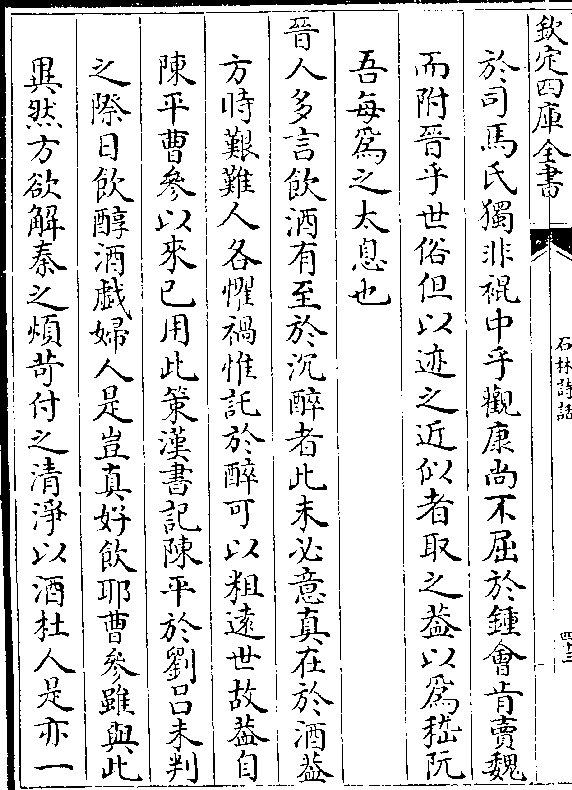 欽定四庫全書
石林詩話
四十三
於司馬氏獨非裩中乎觀康尚不屈於鍾㑹肯賣魏
而附晉乎世俗但以迹之近似者取之葢以為嵇阮
吾每為之太息也
晉人多言飲酒有至於沉醉者此未必意真在於酒葢
方時艱難人各懼禍惟託於醉可以粗遠世故葢自
陳平曹參以來已用此策漢書記陳平於劉吕未判
之際日飲醇酒戯婦人是豈真好飲耶曹參雖與此
異然方欲解秦之煩苛付之清淨以酒杜人是亦一